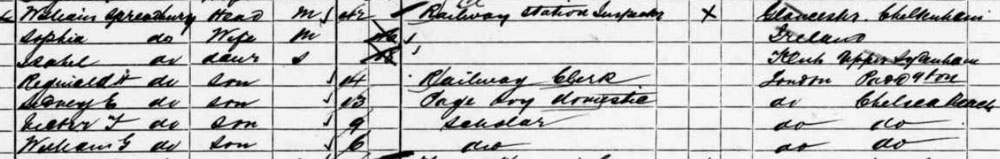 William Spreadbury Head M 42 Railway Station Inspector X Gloucester. Cheltenham
Sophia do Wife M Ireland
Isabel do daur S Kent Upper Sydenham
Reginald do son 14 Railway Clerk London Paddgton
Sidney C do son 13 Page boy domestic do Chelsea
Victor T do son 9 Scholar do do
William G do son 6 do do do